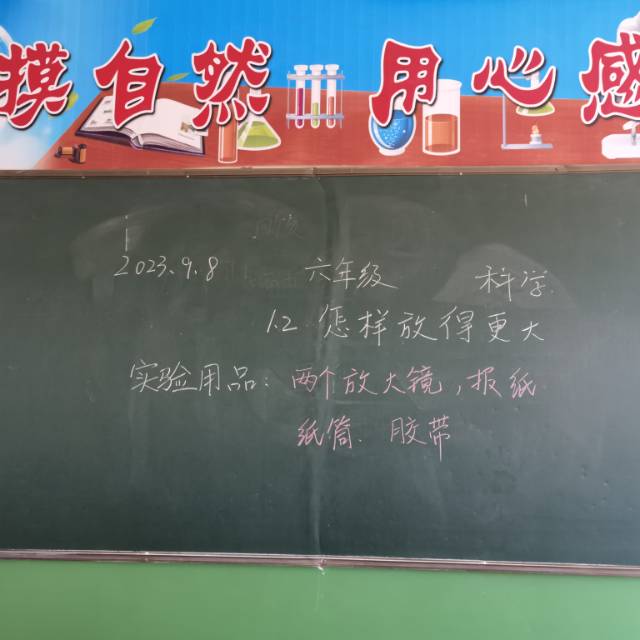 摸自然 用心感
2023.9.8 六年级 科学
1.2 怎样放得更大
实验用品：两个放大镜，报纸
纸筒、胶带